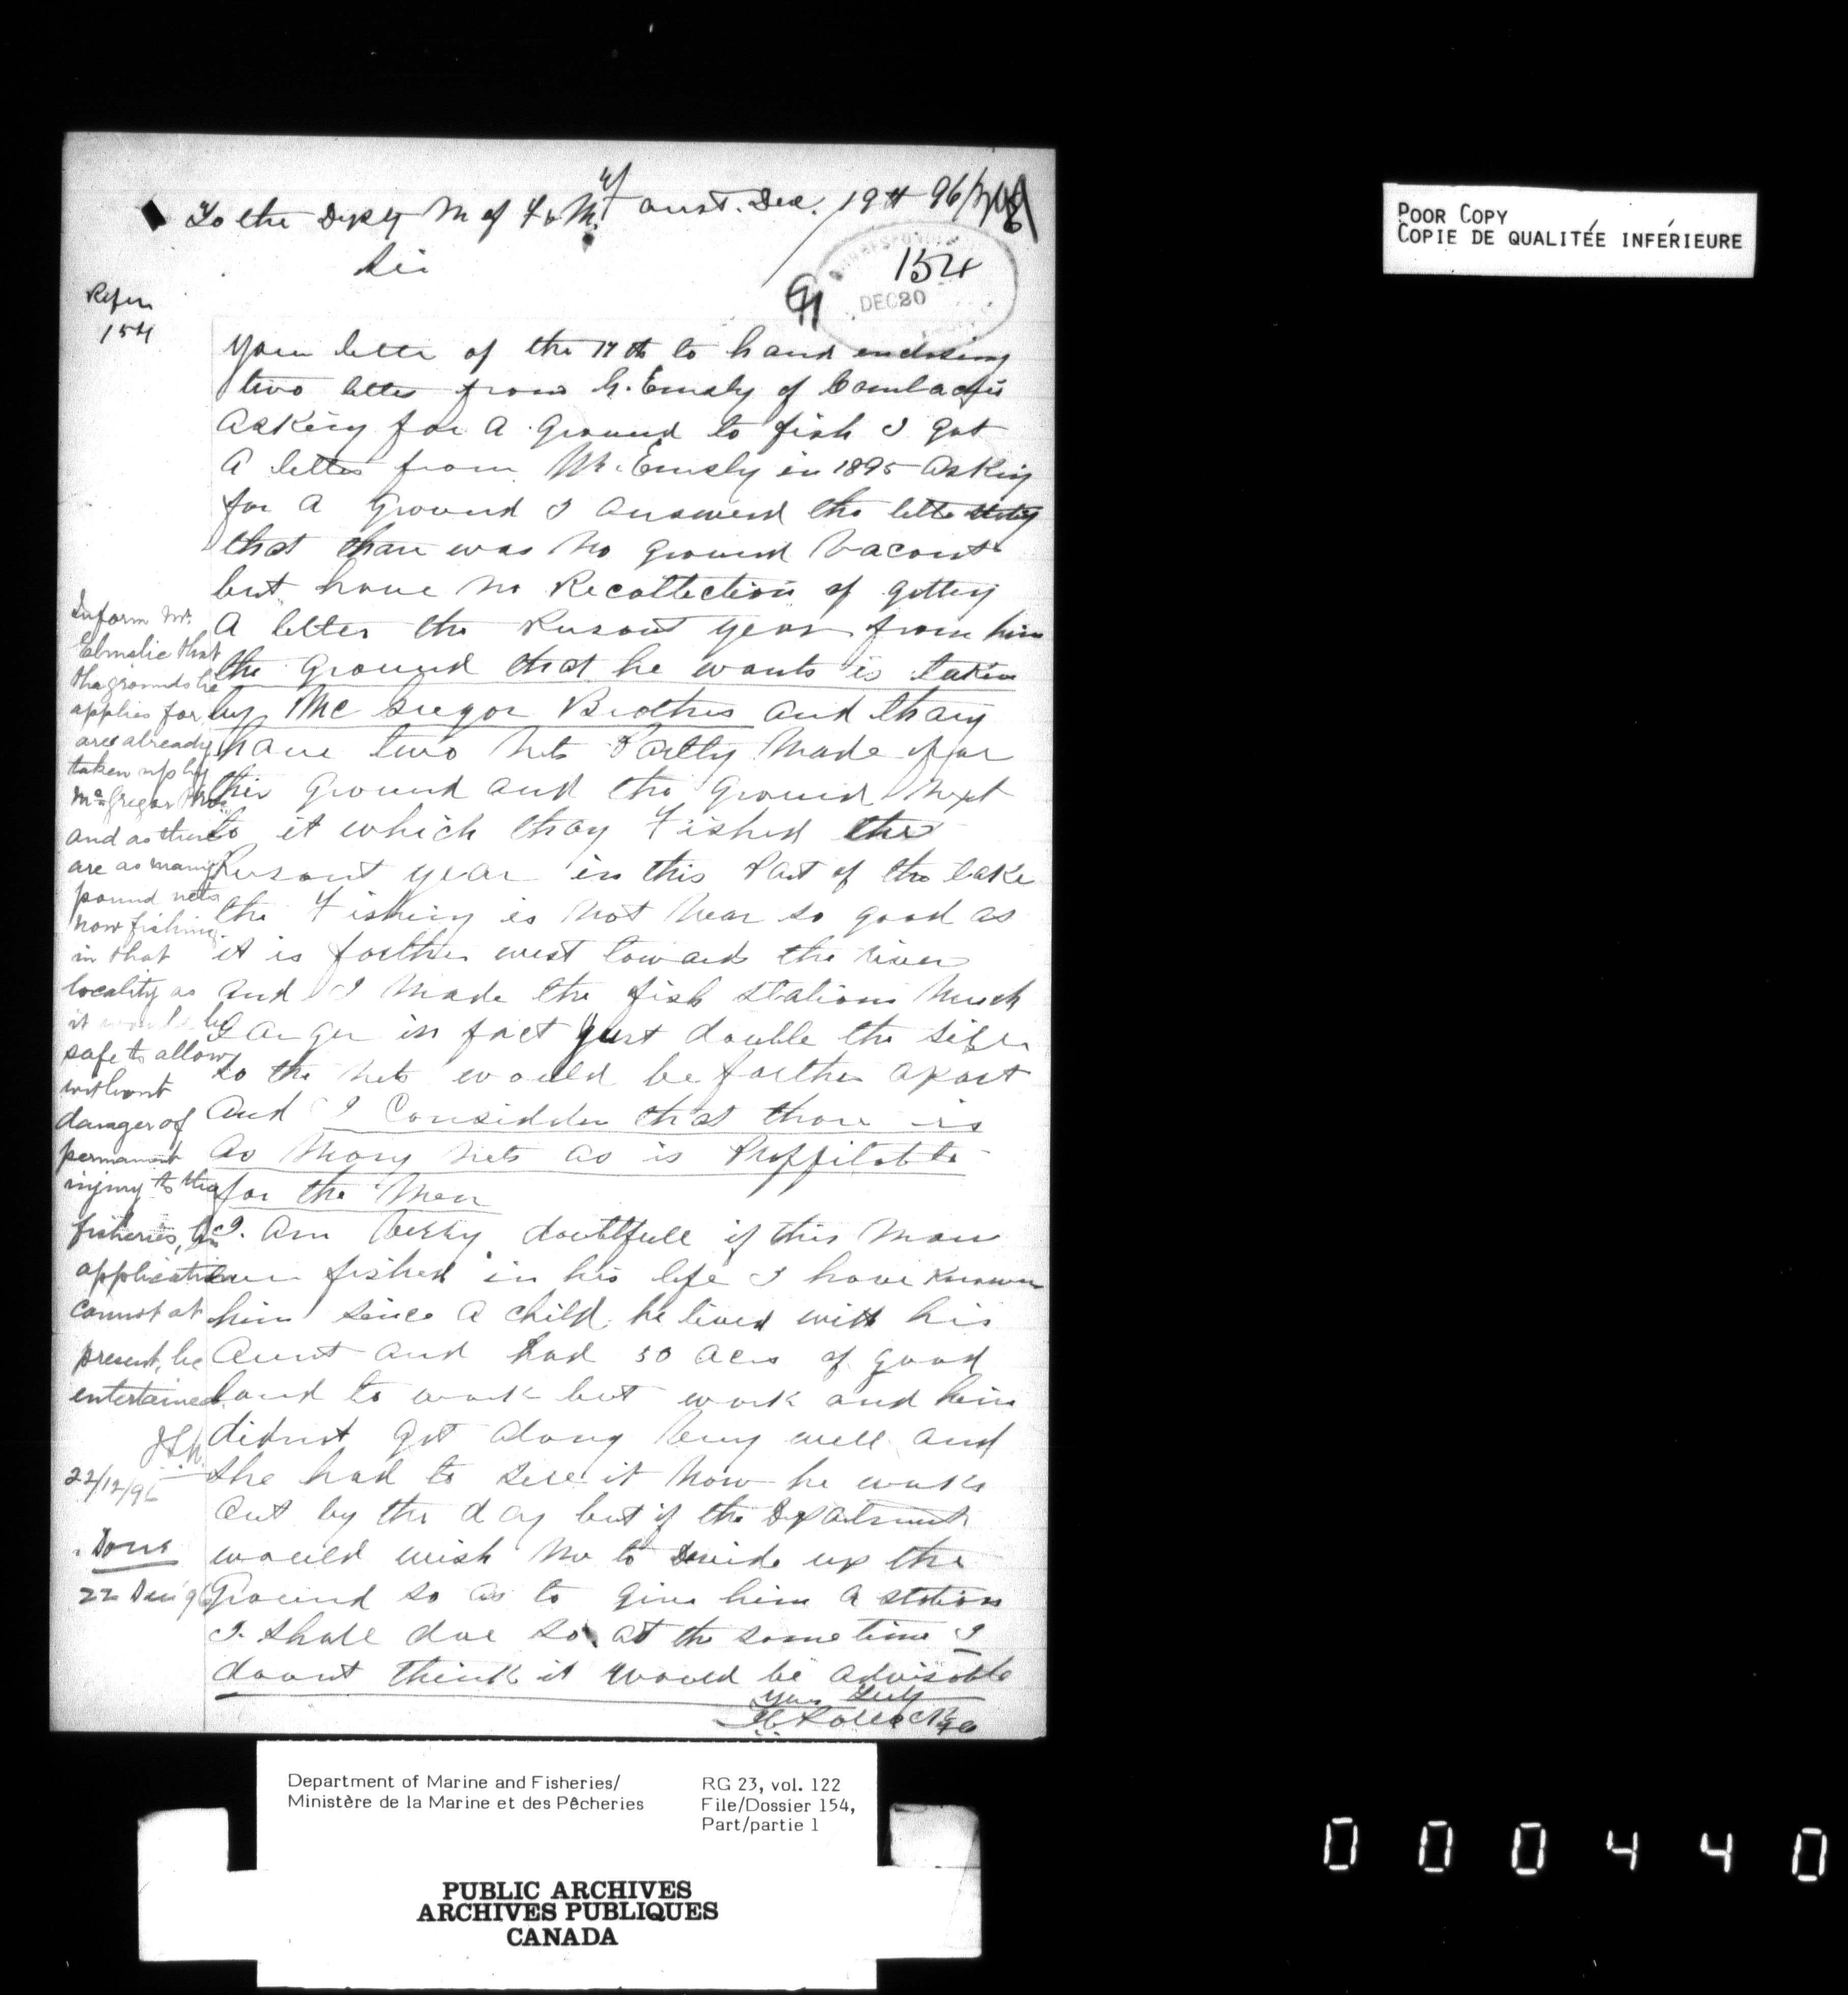 To the Depty M of F & M. Dec. 19th 96
Sir
154
DEC 20
91
Refer
154
Your letter of the 17th to hand enclosing
two letter from G. Emsly of
Asking for A ground to fish I got
A letter from Mr. Emsly in 1895 Asking
for A ground I answerd the letter
that thare was no ground Vacant
but have no Recollection of getting
A letter the Presant year from him
the ground that he wants is taken
by McGregor Brothers and thay
have two nets Partly made for
this ground and the ground next
to it which thay Fished the
Presant year in this Part of the lake
the Fishing is not near so good as
it is farther west towards the river
and I made the fish stations much
Larger in fact just double the size
so the nets would be farther apart
and I Considder that thare is
as many nets as is Proffitable
for the men
I. am verry doubtfull if this man
ever fished in his life I have known
him since a child he lived with his
Aunt and had 50 acrs of good
land to work but work and him
didnot get along very well and
she had to sell it now he works
out by the day but if the Department
would wish me to devide up the
Ground so as to give him a station
I. shall doe so at the same time I
doant think it would be advisable
Yours Truly
H. Pollock
Inform Mr.
Elmslie that
the grounds he
applies for
are already
taken up by
McGregor Bros.
and as there
are as many
pound nets
now fishing
in that
locality as
it would be
safe to allow
without
danger of
permanent
injury to the
fisheries, his
application
cannot at
present, be
entertained.
22/12/96
Done
22 Dec 96
POOR COPY
COPIE DE QUALITÉE INFÉRIEURE
Department of Marine and Fisheries/
Ministère de la Marine et des Pêcheries
RG 23, vol. 122
File/Dossier 154,
Part/partie 1
PUBLIC ARCHIVES
ARCHIVES PUBLIQUES
CANADA
000440